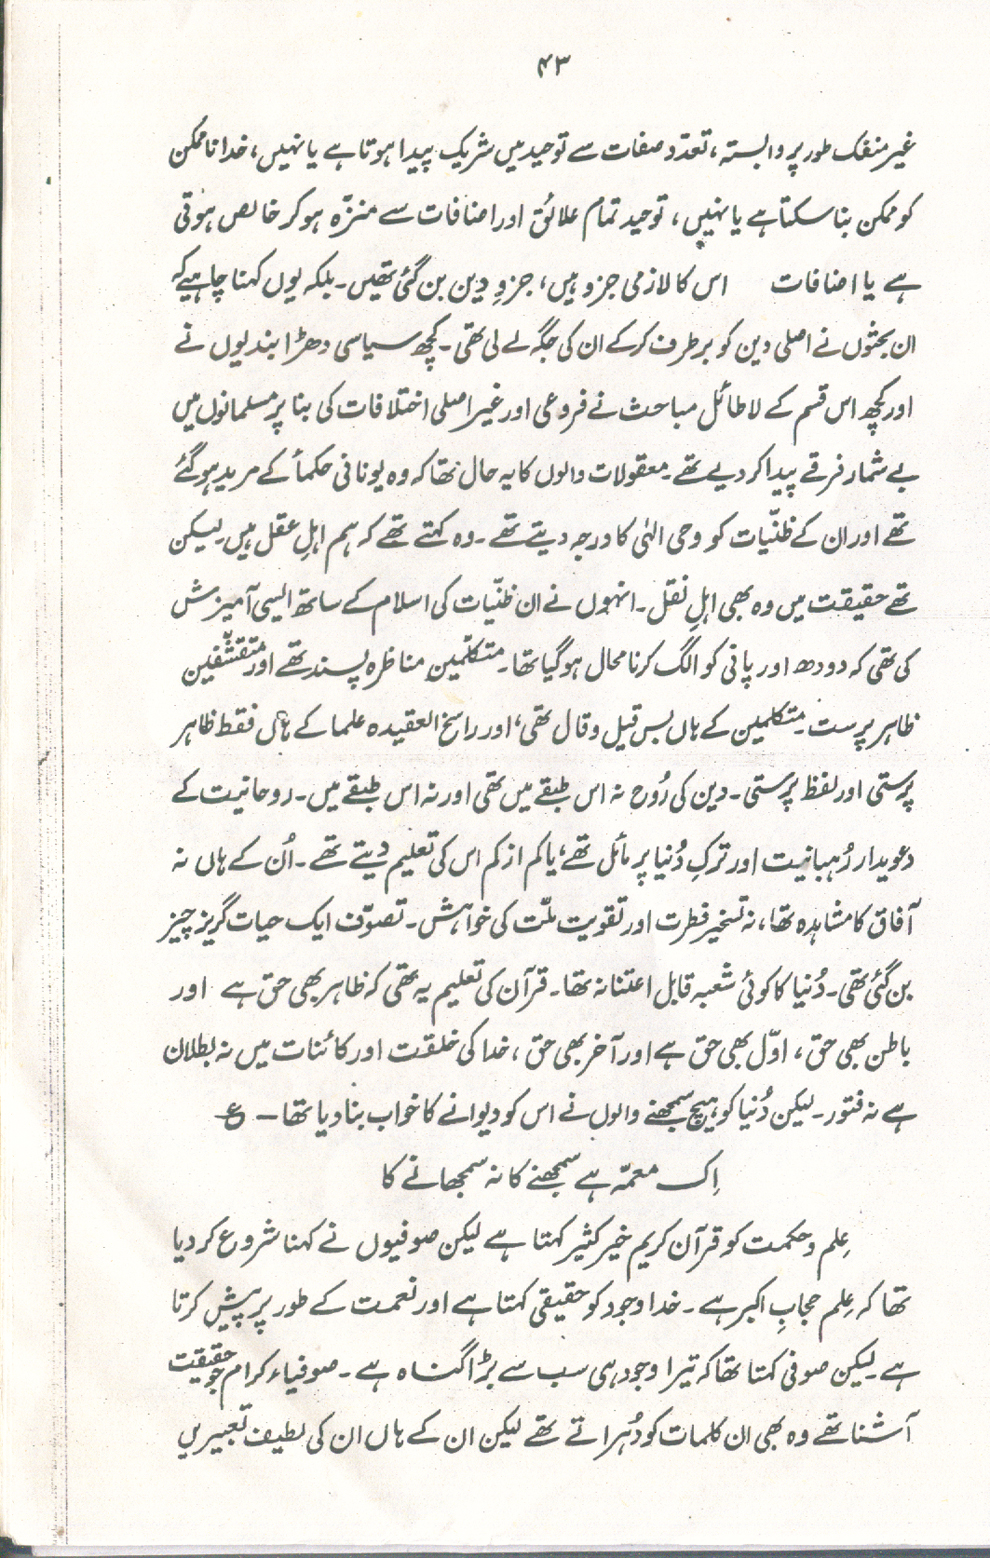 ۴۳
غیر منفک طور پر وابستہ، تعدّد صفات سے توحید میں شریک پیدا ہوتا ہے یا نہیں، خدا ناممکن
کو ممکن بنا سکتا ہے یا نہیں، توحید تمام علائق اور اضافات سے منزّہ ہو کر خالص ہوتی
ہے یا اضافات اس کا لازمی جزو ہیں، جزوِ دین بن گئی تھیں۔ بلکہ یوں کہنا چاہیے کہ
ان بحثوں نے اصلی دین کو برطرف کر کے ان کی جگہ لے لی تھی۔ کچھ سیاسی دھڑا بندیوں نے
اور کچھ اس قسم کے لا طائل مباحث نے فروعی اور غیر اصلی اختلافات کی بنا پر مسلمانوں میں
بے شمار فرقے پیدا کر دیے تھے۔ معقولات والوں کا یہ حال تھا کہ وہ یونانی حکمأ کے مرید ہو گئے
تھے اور ان کے ظنّیات کو وحی الہٰی کا درجہ دیتے تھے۔ وہ کہتے تھے کہ ہم اہلِ عقل ہیں۔ لیکن
تھے حقیقت میں وہ بھی اہلِ نقل۔ انہوں نے ان ظنّیات کی اسلام کے ساتھ ایسی آمیزش
کی تھی کہ دودھ اور پانی کو الگ کرنا محال ہو گیا تھا۔ متکلّمین مناظرہ پسند تھے اور متقشّفین
ظاہر پرست۔ متکلمین کے ہاں بس قیل و قال تھی، اور راسخ العقیدہ علما کے ہاں فقط ظاہر
پرستی اور لفظ پرستی۔ دین کی رُوح نہ اس طبقے میں تھی اور نہ اس طبقے میں۔ روحانیت کے
دعویدار رُہبانیت اور ترکِ دُنیا پر مائل تھے، یا کم از کم اس کی تعلیم دیتے تھے۔ اُن کے ہاں نہ
آفاق کا مشاہدہ تھا، نہ تسخیر فطرت اور تقویت ملّت کی خواہش۔ تصوّف ایک حیات گریز چیز
بن گئی تھی۔ دُنیا کا کوئی شعبہ قابل اعتنا نہ تھا۔ قرآن کی تعلیم یہ تھی کہ ظاہر بھی حق ہے اور
باطن بھی حق، اوّل بھی حق ہے اور آخر بھی حق، خدا کی خلقت اور کائنات میں نہ بطلان
ہے نہ فتور۔ لیکن دُنیا کو ہیچ سمجھنے والوں نے اس کو دیوانے کا خواب بنا دیا تھا — ع
اِک معمّہ ہے سمجھنے کا نہ سمجھانے کا
عِلم و حکمت کو قرآن کریم خیر کثیر کہتا ہے لیکن صوفیوں نے کہنا شروع کر دیا
تھا کہ عِلم حجابِ اکبر ہے۔ خدا وجود کو حقیقی کہتا ہے اور نعمت کے طور پر پیش کرتا
ہے۔ لیکن صوفی کہتا تھا کہ تیرا وجود ہی سب سے بڑا گناہ ہے۔ صوفیاء کرام جو حقیقت
آشنا تھے وہ بھی ان کلمات کو دُہراتے تھے لیکن ان کے ہاں ان کی لطیف تعبیریں